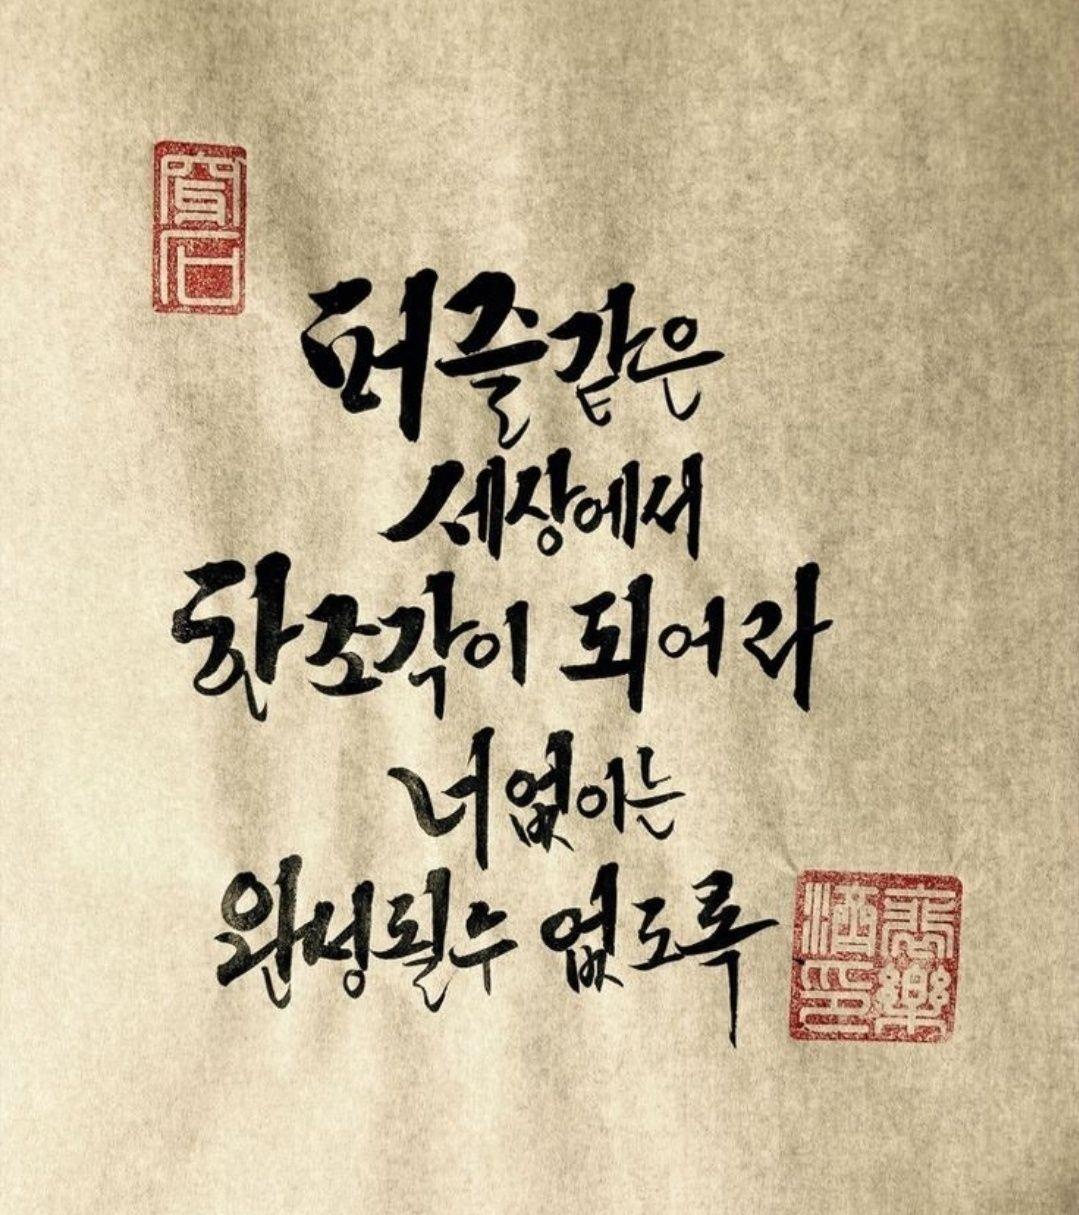 퍼즐같은
세상에서
한조각이 되어라
너없이는
완성될수 없도록